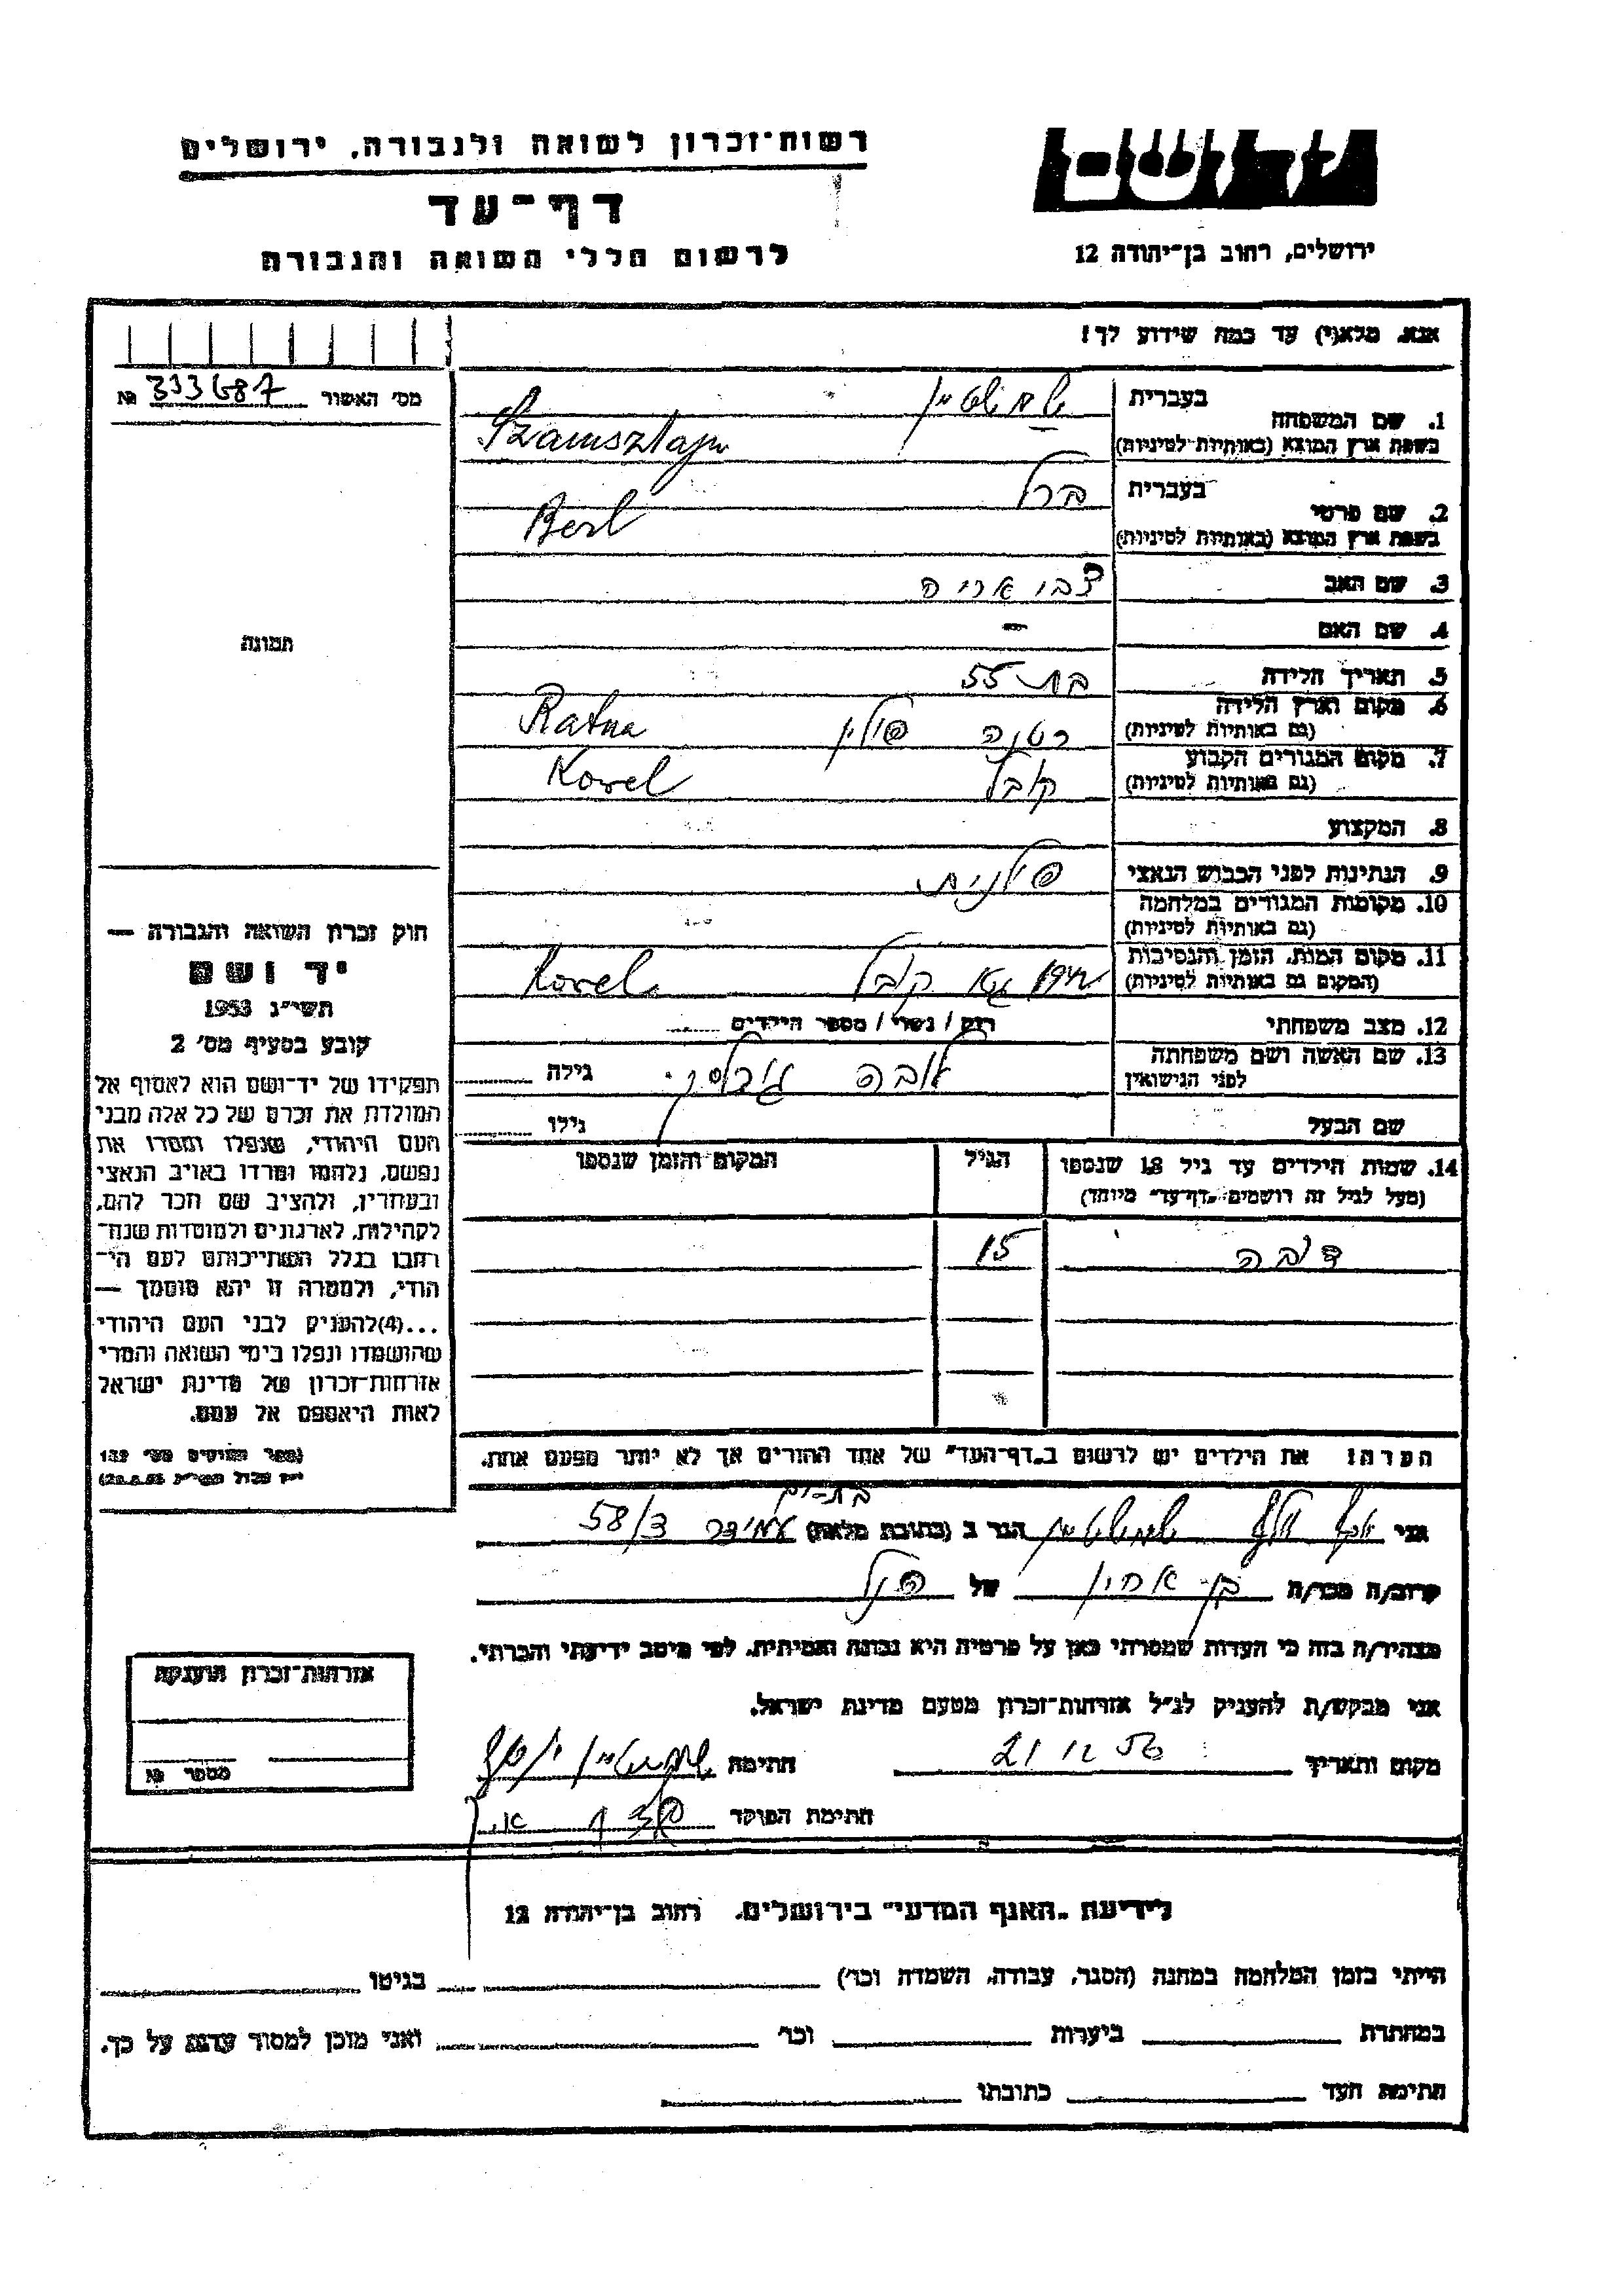 רשות־זכרון לשואה ולגבורה, ירושלים
דף־עד
לרשום חללי השואה והגבורה
ירושלים, רחוב בן־יהודה 12
אנא, מלא(י) עד כמה שידוע לך!
מס׳ האשור 333687 №
1. שם המשפחה
בעברית
בשפת ארץ המוצא (באותיות לטיניות)
Szamsztajn
2. שם פרטי
בעברית ברל
בשפת ארץ המוצא (באותיות לטיניות)
Berl
3. שם האב צבי אריה
4. שם האם -
5. תאריך הלידה בת 55
6. מקום וארץ הלידה
(גם באותיות לטיניות) רטנה פולין Ratna
7. מקום המגורים הקבוע
(גם באותיות לטיניות) קובל Kovel
8. המקצוע
9. הנתינות לפני הכבוש הנאצי פולנית
10. מקומות המגורים במלחמה
(גם באותיות לטיניות)
11. מקום המות, הזמן והנסיבות
(המקום גם באותיות לטיניות) קובל Kovel
12. מצב משפחתי רווק / נשוי / מספר הילדים
13. שם האשה ושם משפחתה
לפני הנישואין
גילה
שם הבעל גילו
14. שמות הילדים עד גיל 18 שנספו
(מעל לגיל זה רושמים „דף־עד״ מיוחד)
הגיל
המקום והזמן שנספו
15
הערה: את הילדים יש לרשום ב„דף־העד״ של אחד ההורים אך לא יותר מפעם אחת.
תמונה
חוק זכרון השואה והגבורה —
יד ושם
תשי״ג 1953
קובע בסעיף מס׳ 2
תפקידו של יד־ושם הוא לאסוף אל
המולדת את זכרם של כל אלה מבני
העם היהודי, שנפלו ומסרו את
נפשם, נלחמו ומרדו באויב הנאצי
ובעוזריו, ולהציב שם וזכר להם,
לקהילות, לארגונים ולמוסדות שנח־
רבו בגלל השתייכותם לעם הי־
הודי, ולמטרה זו יהא מוסמך —
...(4) להעניק לבני העם היהודי
שהושמדו ונפלו בימי השואה והמרי
אזרחות־זכרון של מדינת ישראל
לאות היאספם אל עמם.
בת-ים
אני הגר ב (כתובת מלאה) עמידר 58/3
קרוב/ה מכר/ה בן אחיו של
מצהיר/ה בזה כי העדות שמסרתי כאן על פרטיה היא נכונה ואמיתית, לפי מיטב ידיעתי והכרתי.
אני מבקש/ת להעניק לנ״ל אזרחות־זכרון מטעם מדינת ישראל.
מקום ותאריך 21 12 56 חתימה
חתימת הפוקד
אזרחות־זכרון הוענקה
מספר №
לידיעת „האגף המדעי״ בירושלים, רחוב בן־יהודה 12
הייתי בזמן המלחמה במחנה (הסגר, עבודה, השמדה וכו׳) בגיטו
במחתרת ביערות וכו׳ ואני מוכן למסור עדות על כך.
חתימת העד כתובתו